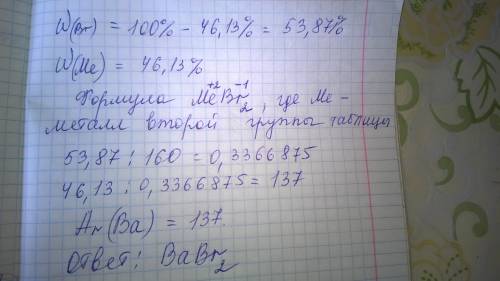 W(Br) = 100% - 46,13% = 53,87%
W(Me) = 46,13%
Формула Me⁺²Br₂⁻¹, где Me -
металл второй группы таблицы
53,87 : 160 = 0,3366875
46,13 : 0,3366875 = 137
Ar(Ba) = 137.
Ответ: BaBr₂